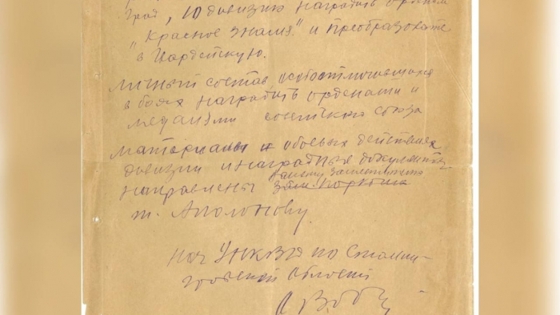 град, 10 дивизию наградить орденом
„Красное знамя" и преобразовать
в Гвардейскую.
Личный состав особоотличившихся
в боях наградить орденами и
медалями советского союза
Материалы о боевых действиях
дивизии и наградные документы
вашему заместителю
направлены
т. Аполонову.
Нач УНКВД по Сталин-
градской области